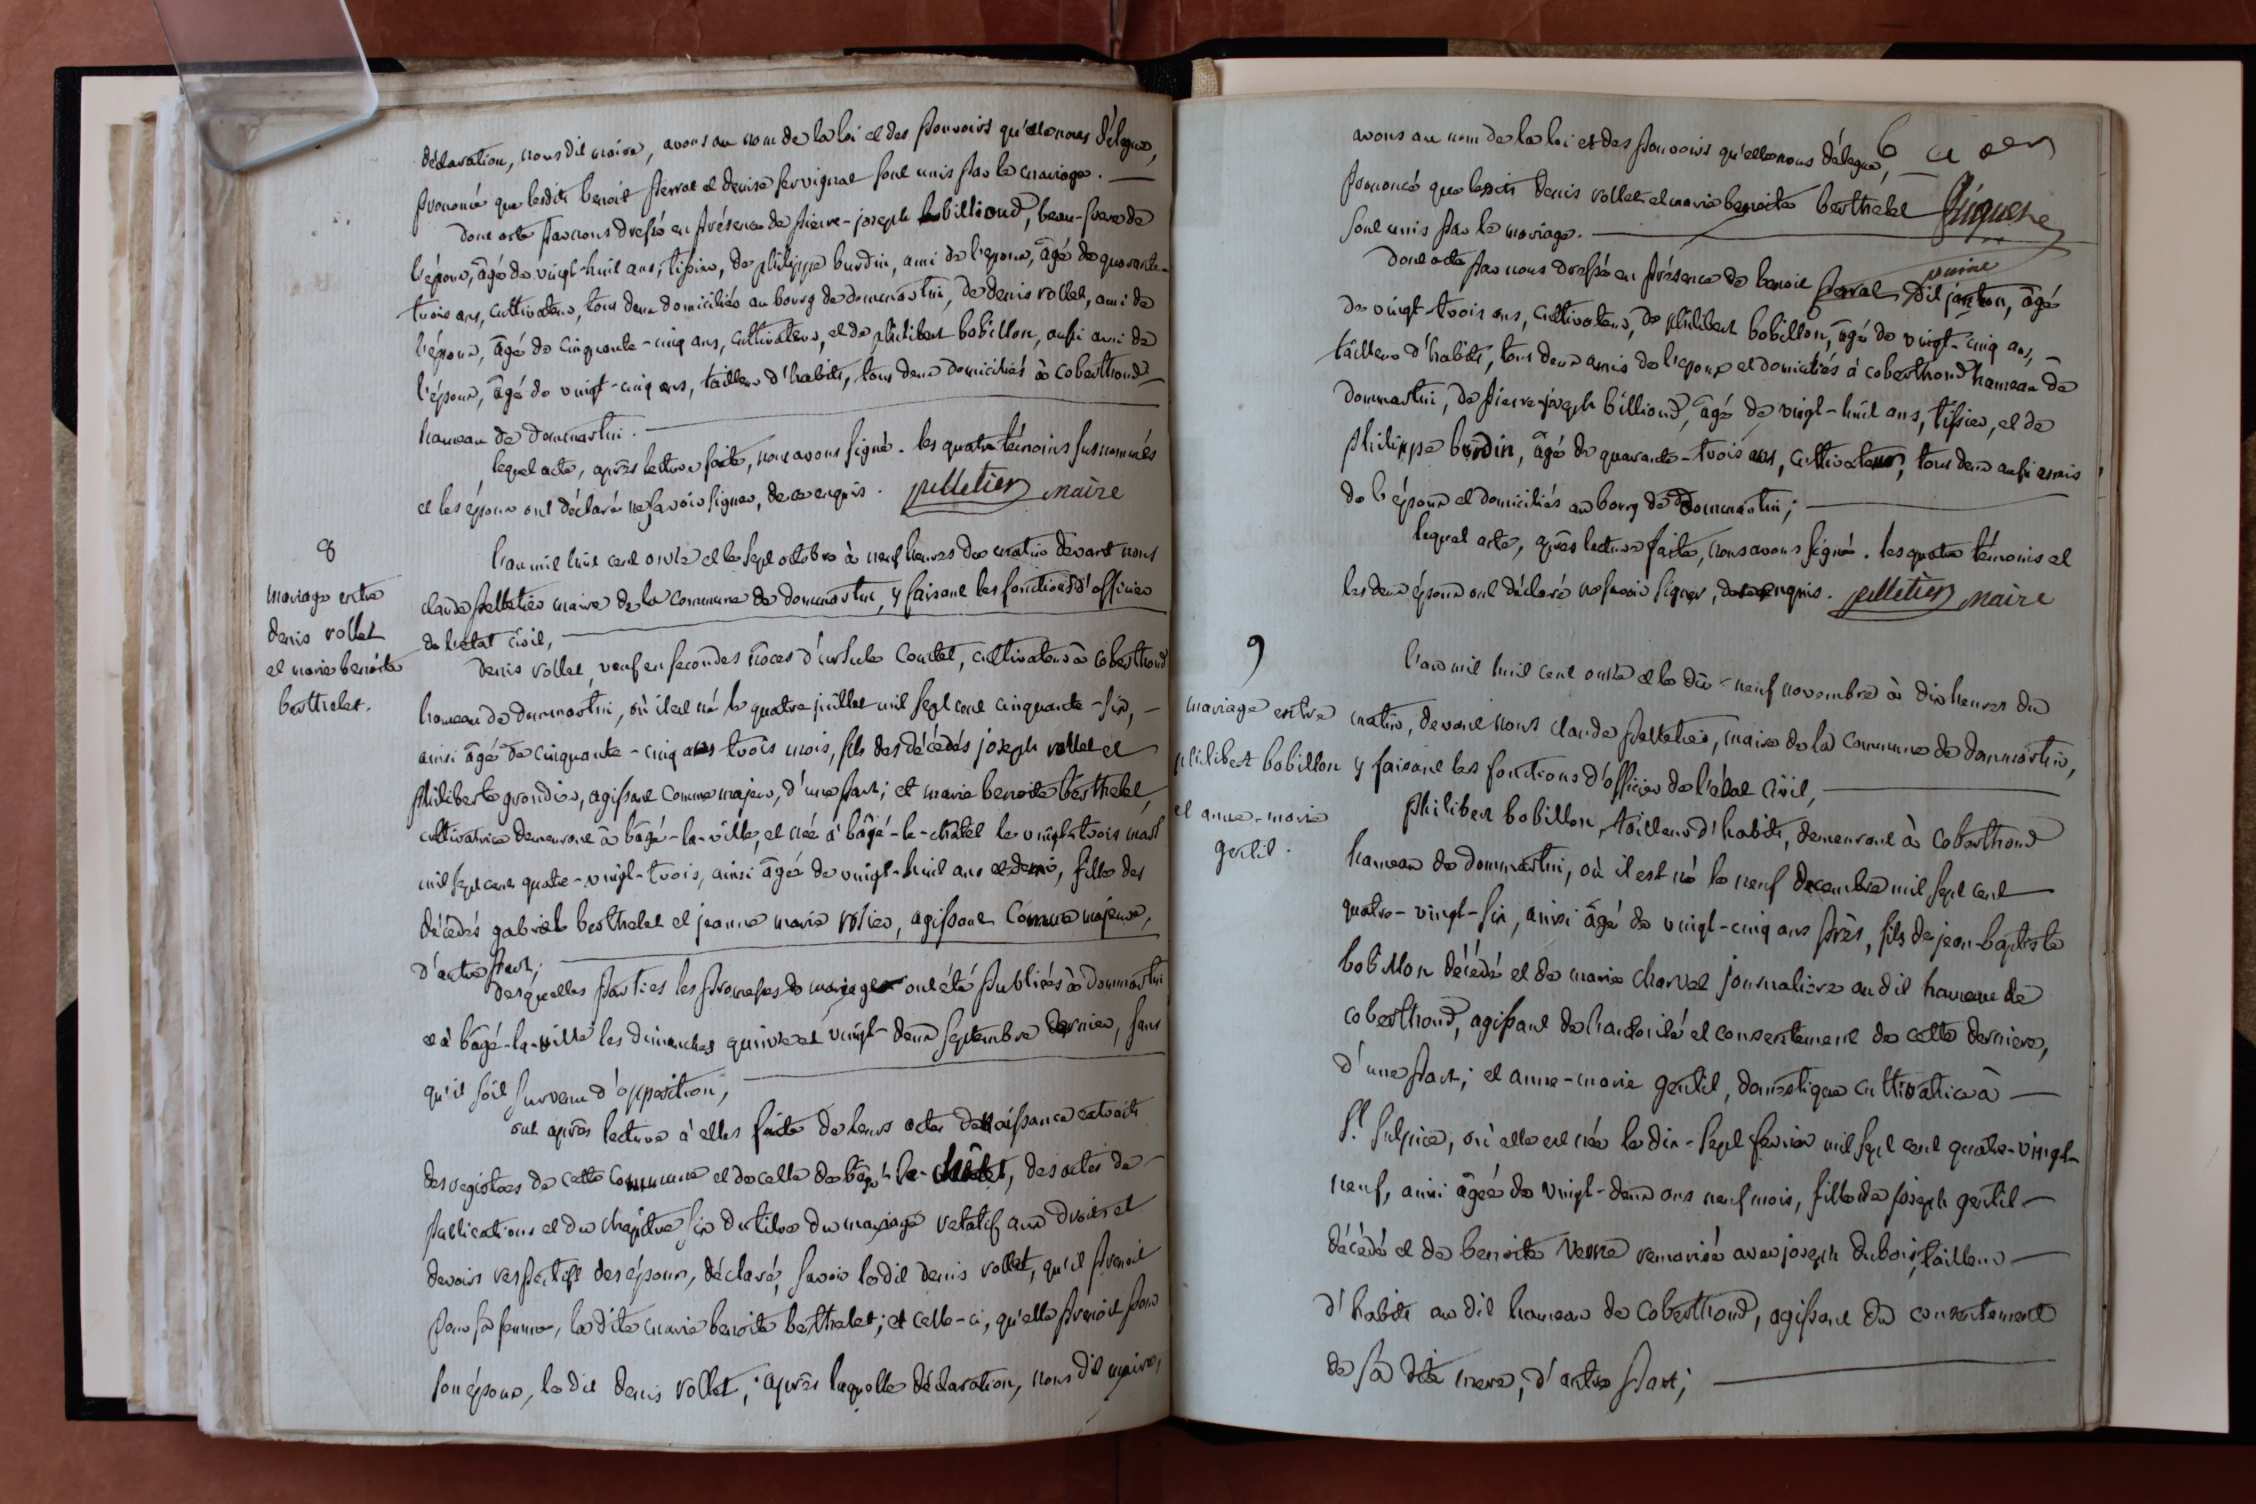 déclaration, nous dit maire, avons au nom de la loi et des pouvoirs qu'elle nous délegue,
prononcé que lesdits benoit perrat et denise servignat sont unis par le mariage. —
dont acte par nous dressé en présence de pierre-joseph billioud, beau-frere de
l'époux, âgé de vingt-huit ans, tissier, de philippe burdin, ami de l'epoux, âgé de quarante-
trois ans, cultivateur, tous deux domiciliés au bourg de dommartin, de denis rollet, ami de
l'épouse, âgé de cinquante-cinq ans, cultivateur, et de philibert bobillon, aussi ami de
l'épouse, âgé de vingt-cinq ans, tailleur d'habits, tous deux domiciliés à coberthoud
hameau de dommartin. —
lequel acte, après lecture faite, nous avons signé. les quatre témoins susnommés
et les époux ont déclaré ne savoir signer, de ce enquis. pelletier maire
8
mariage entre
denis rollet
et marie benoite
berthelet.
l'an mil huit cent onze et le sept octobre à neuf heures du matin devant nous
claude pelletier maire de la commune de dommartin, y faisant les fonctions d'officier
de l'état civil, —
denis rollet, veuf en secondes nôces d'ursule coulet, cultivateur à coberthoud
hameau de dommartin, où il est né le quatre juillet mil sept cent cinquante-six, —
ainsi âgé de cinquante-cinq ans trois mois, fils des décédés joseph rollet et
philiberte grondier, agissant comme majeur, d'une part; et marie benoite berthelet,
cultivatrice demeurant à bâgé-la-ville, et née à bâgé-le-châtel le vingt-trois mars
mil sept cent quatre-vingt-trois, ainsi âgée de vingt-huit ans et demi, fille des
décédés gabriel berthelet et jeanne marie rosier, agissant comme majeure,
d'autre part; —
desquelles parties les promesses de mariage ont été publiées à dommartin
et à bâgé-la-ville les dimanches quinze et vingt-deux septembre dernier, sans
qu'il soit survenu d'opposition, —
ont après lecture à elles faite de leurs actes de naissance extraits
des registres de cette commune et de celle de bâgé-le-châtel, des actes de
publications et du chapitre six du titre du mariage relatif aux droits et
devoirs respectifs des époux, déclaré, savoir ledit denis rollet, qu'il prenoit
pour sa femme, la dite marie benoite berthelet; et celle-ci, qu'elle prenoit pour
son époux, le dit denis rollet; après laquelle déclaration, nous dit maire,
avons au nom de la loi et des pouvoirs qu'elle nous délegue,
prononcé que lesdits denis rollet et marie benoite berthelet
sont unis par le mariage. —
dont acte par nous dressé en présence de benoit perrat dit janton, âgé
de vingt-trois ans, cultivateur, de philibert bobillon, âgé de vingt-cinq ans,
tailleur d'habits, tous deux amis de l'époux et domiciliés à coberthoud hameau de
dommartin, de pierre-joseph billioud, âgé de vingt-huit ans, tissier, et de
philippe burdin, âgé de quarante-trois ans, cultivateur, tous deux aussi amis
de l'épouse et domiciliés au bourg de dommartin; —
lequel acte, après lecture faite, nous avons signé. les quatre témoins et
les deux époux ont déclaré ne savoir signer, de ce enquis. pelletier maire
9
mariage entre
philibert bobillon
et anne-marie
gentil.
l'an mil huit cent onze et le dix-neuf novembre à dix heures du
matin, devant nous claude pelletier, maire de la commune de dommartin,
y faisant les fonctions d'officier de l'état civil, —
philibert bobillon, tailleur d'habits, demeurant à coberthoud
hameau de dommartin, où il est né le neuf decembre mil sept cent
quatre-vingt-six, ainsi âgé de vingt-cinq ans près, fils de jean-baptiste
bobillon décédé et de marie charvet journaliere au dit hameau de
coberthoud, agissant de l'autorité et consentement de cette derniere,
d'une part; et anne-marie gentil, domestique cultivatrice à —
St. Sulpice, où elle est née le dix-sept fevrier mil sept cent quatre-vingt-
neuf, ainsi âgée de vingt-deux ans neuf mois, fille de joseph gentil —
décédé et de benoite verne remariée avec joseph dubois, tailleur —
d'habits au dit hameau de coberthoud, agissant du consentement
de sa dite mere, d'autre part; —